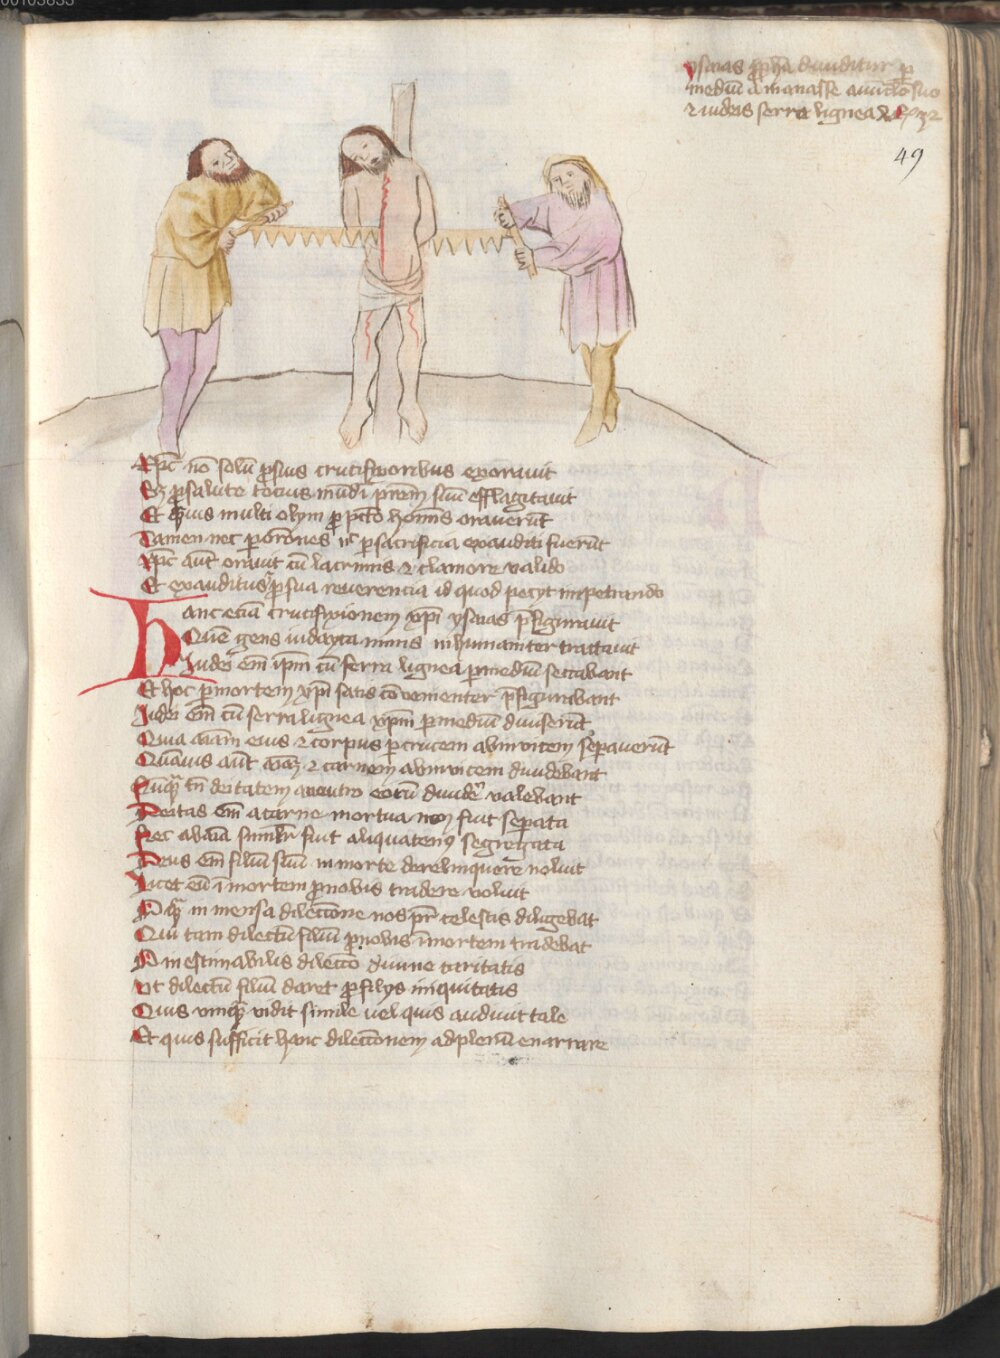 00103853
ysaias ppha diuiditur p
mediũ a manasse auũclo suo
⁊ iudeis serra lignea
49
Xpc nõ solũ p suis crucifixoribus exorauit
Sȝ p salute tocius mũdi prẽm suũ efflagitauit
Et qͣuis multi olym p pctõ hoĩnis orauerũt
Tamen nec p orõnes nͨ p sacrificia exauditi fuerũt
Xpc aũt orauit cũ lacrimis ⁊ clamore valido
Et exauditus p sua reuerencia id quod pecyt impetrando
Hanc eciã crucifixionem xpi ysaias p̃figurauit
Quẽ gens iudayca nimis inhumaniter tractauit
Iudei em̃ ip̃m cũ serra lignea p mediũ secabant
Et hoc p mortem xpi satis cõuenienter p̃figurabant
Iudei em̃ cũ serra lignea xpm p mediũ diuiserũt
Quia aĩam eius ⁊ corpus p crucem abinuicem sepauerũt
Quãuis aũt aĩaȝ ⁊ carnem abinuicem diuidebant
Nũqͣ tñ deitatem a neutro eorũ diuidẽ valebant
Deitas em̃ a carne mortua non fuit sepata
Nec ab aĩa simil'r fuit aliquatenꝰ segregata
Deus em̃ filiũ suũ in morte derelinquere noluit
Licet eũ ĩ mortem p nobis tradere voluit
O qͣ in mensa dilectione nos pr̃ celestis diligebat
Qui tam dilectũ filiũ p nobis ĩ mortem tradebat
O inestimabilis dilectio diuine caritatis
Vt dilectũ filiũ daret p filys iniquitatis
Quis vnqͣ vidit simile uel quis audiuit tale
Et quis sufficit hanc dilectionem ad plenũ enarrare